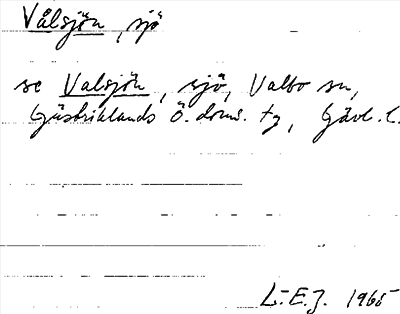 Vålsjön, sjö
se Valsjön, sjö, Valbo sn,
Gästriklands Ö. doms. tg, Gävl. l.
L.E.J. 1965